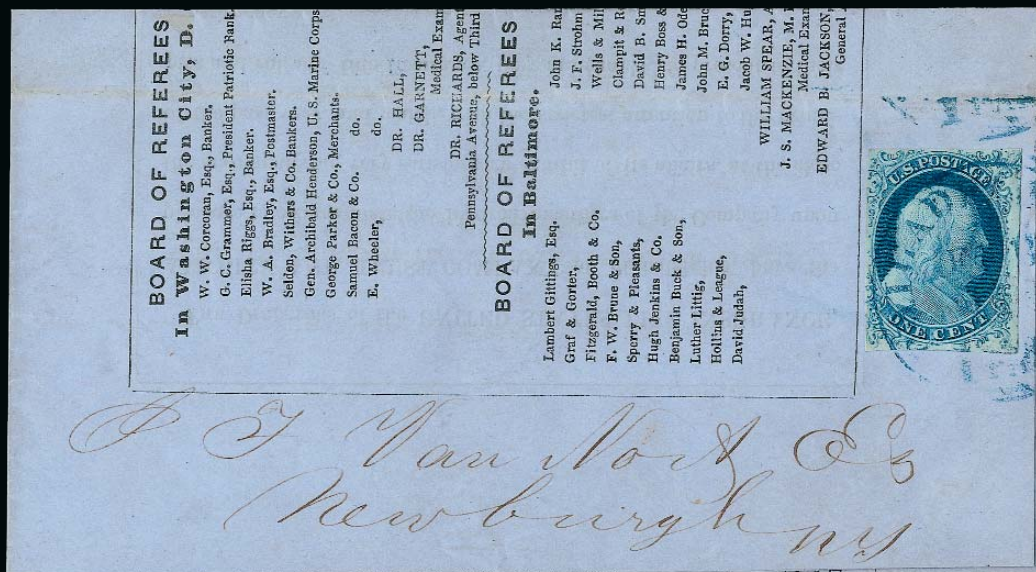 BOARD OF REFEREES
In Washington City, D.
W. W. Corcoran, Esq., Banker.
G. C. Grammer, Esq., President Patriotic Bank.
Elisha Riggs, Esq., Banker.
W. A. Bradley, Esq., Postmaster.
Selden, Withers & Co. Bankers.
Gen. Archibald Henderson, U. S. Marine Corps
George Parker & Co., Merchants.
Samuel Bacon & Co. do.
E. Wheeler, do.
DR. HALL,
DR. GARNETT,
Medical Exam
DR. RICHARDS, Agent
Pennsylvania Avenue, below Third
BOARD OF REFEREES
In Baltimore.
Lambert Gittings, Esq.
Graf & Gorter,
Fitzgerald, Booth & Co.
F. W. Brune & Son,
Sperry & Pleasants,
Hugh Jenkins & Co.
Benjamin Buck & Son,
Luther Littig,
Hollins & League,
David Judah,
John K. Ran
J. F. Strohm
Wells & Mil
Clampit & R
David B. Sm
Henry Boss &
James H. Ode
John M. Bruc
E. G. Dorry,
Jacob W. Hu
WILLIAM SPEAR, A
J. S. MACKENZIE, M.
Medical Exam
EDWARD B. JACKSON,
General
U.S. POSTAGE
ONE CENT
PAID
Van Nort Esq
Newburgh
NY